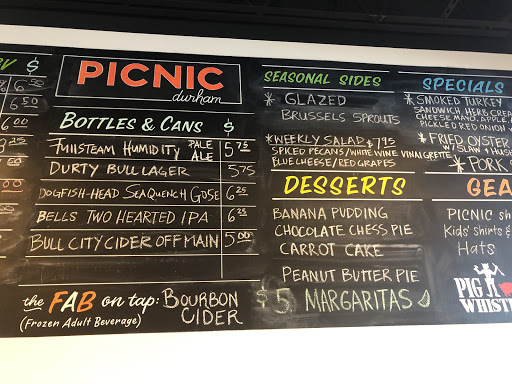 $
6.50
6.00
PICNIC
durham
BOTTLES & CANS $
FULLSTEAM HUMIDITY PALE ALE 5.75
DURTY BULL LAGER 5.75
DOGFISH-HEAD SEAQUENCH GOSE 6.25
BELLS TWO HEARTED IPA 6.25
BULL CITY CIDER OFF MAIN 5.00
the FAB on tap: BOURBON
(Frozen Adult Beverage) CIDER
SEASONAL SIDES
* GLAZED
BRUSSELS SPROUTS
* WEEKLY SALAD $7.95
SPICED PECANS/WHITE WINE VINAIGRETTE
BLUE CHEESE/RED GRAPES
DESSERTS
BANANA PUDDING
CHOCOLATE CHESS PIE
CARROT CAKE
PEANUT BUTTER PIE
$5 MARGARITAS
SPECIALS
* SMOKED TURKEY
SANDWICH HERB CREA
CHEESE MAYO, APPLE
PICKLED RED ONION
* FRIED OYSTER
W/ SLAW &
* PORK
GEA
PICNIC sh
Kids' shirts &
Hats
PIG
WHIST